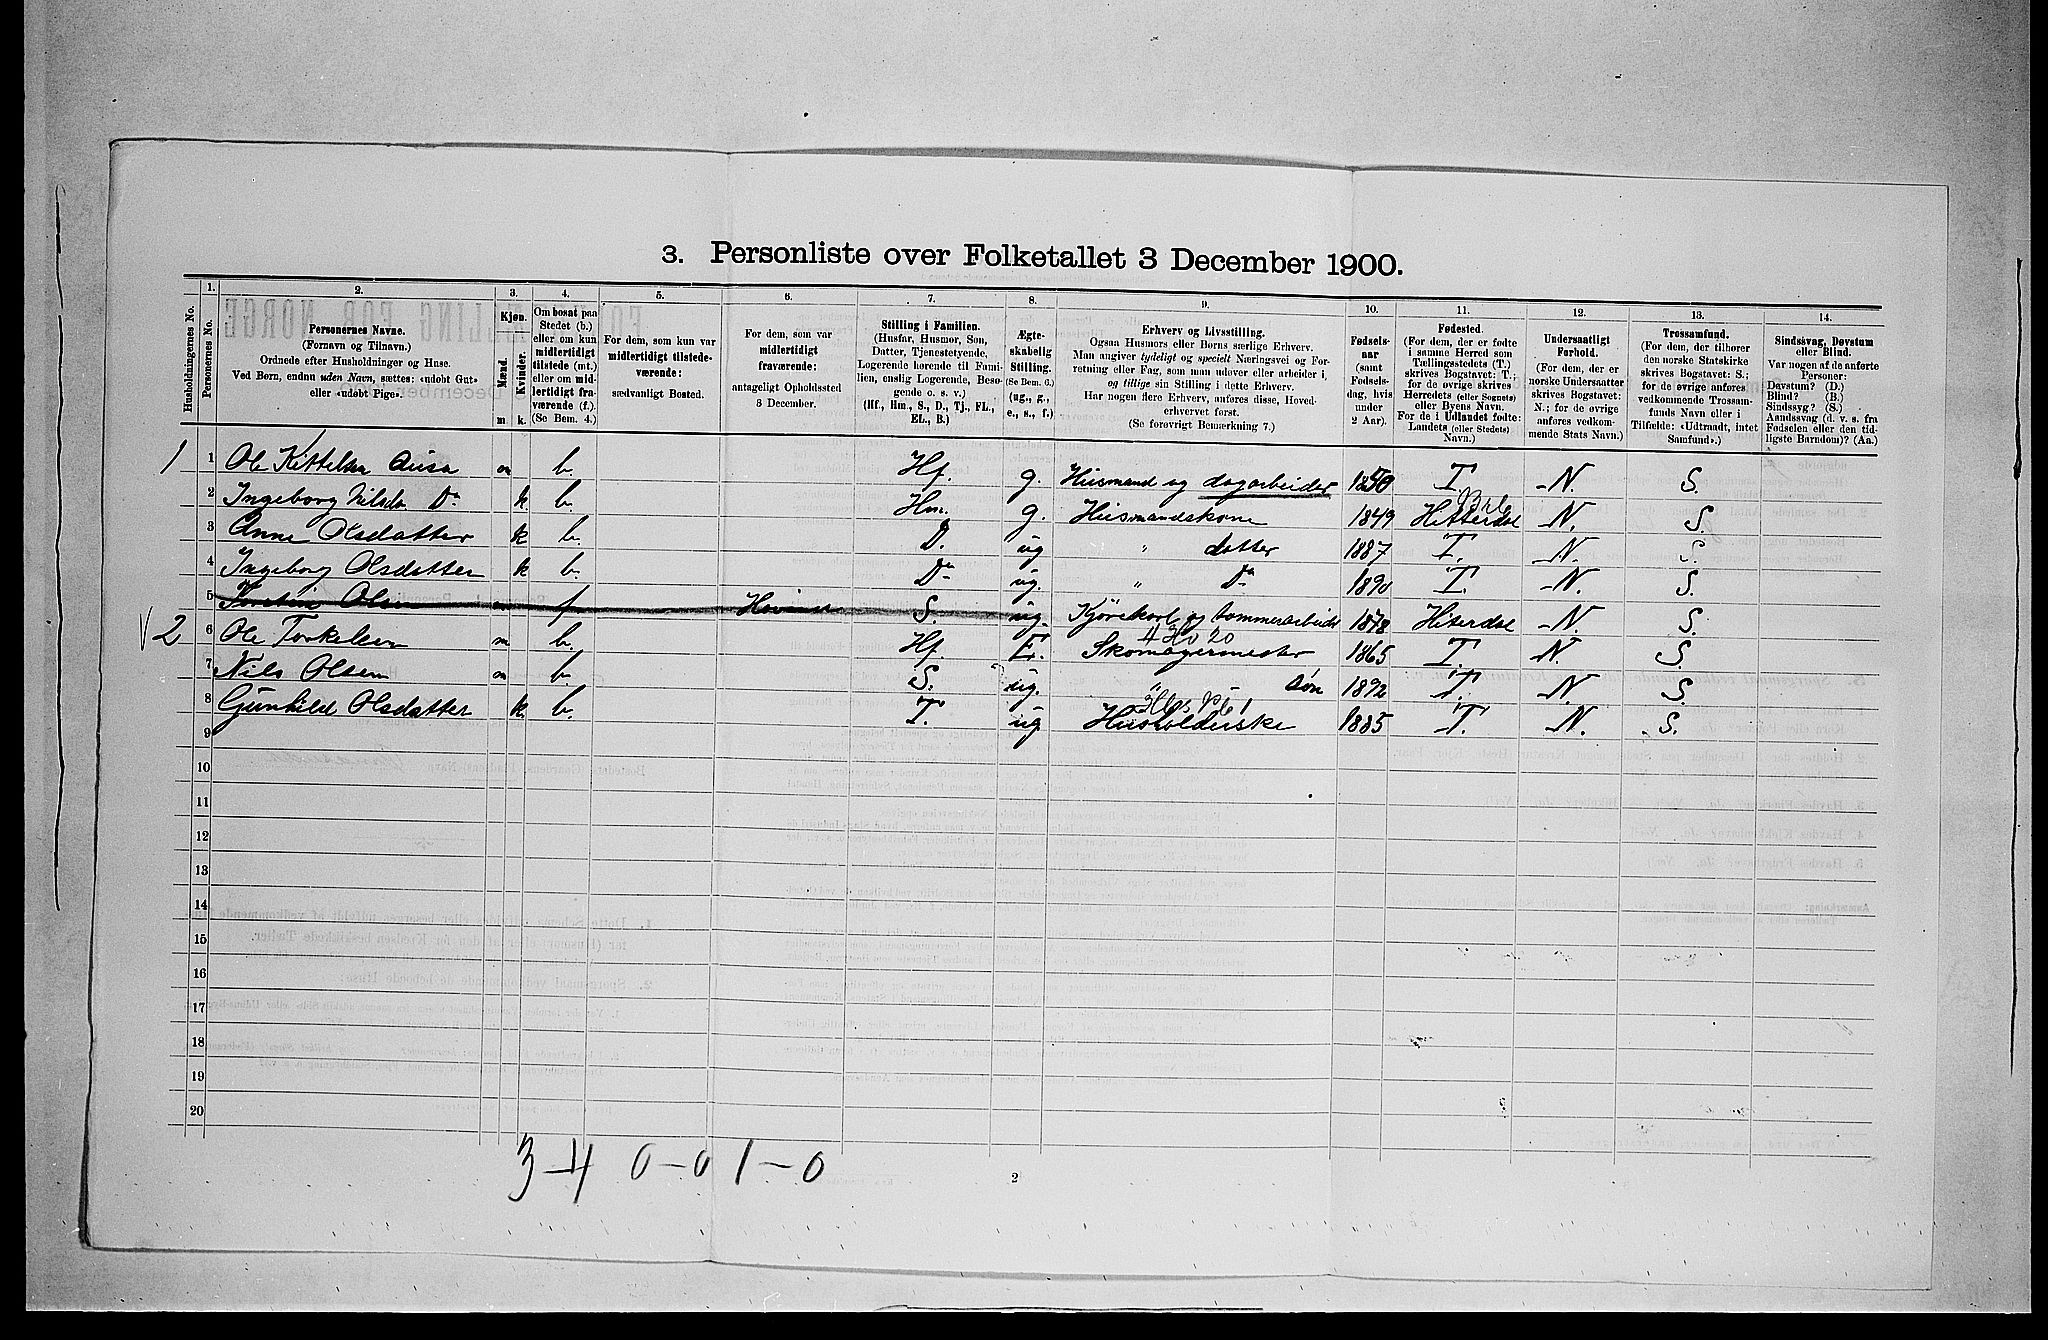 3. Personliste over Folketallet 3 December 1900.
1. 2. 3. 4. 5. 6. 7. 8. 9. 10. 11. 12. 13. 14.
Husholdningernes No.
Personernes No.
Personernes Navne.
(Fornavn og Tilnavn.)
Ordnede efter Husholdninger og Huse.
Ved Børn, endnu uden Navn, sættes: «udøbt Gut»
eller «udøbt Pige».
Kjøn.
Mænd.
Kvinder.
m k.
Om bosat paa
Stedet (b.)
eller om kun
midlertidigt
tilstede (mt.)
eller om mid-
lertidigt fra-
værende (f.).
(Se Bem. 4.)
For dem, som kun var
midlertidigt tilstede-
værende:
sædvanligt Bosted.
For dem, som var
midlertidigt
fraværende:
antageligt Opholdssted
3 December.
Stilling i Familien.
(Husfar, Husmor, Søn,
Datter, Tjenestetyende,
Logerende hørende til Fami-
lien, enslig Logerende, Besø-
gende o. s. v.)
(Hf., Hm., S., D., Tj., FL.,
EL., B.)
Ægte-
skabelig
Stilling.
(Se Bem. 6.)
(ug., g.,
e., s., f.)
Erhverv og Livsstilling.
Ogsaa Husmors eller Børns særlige Erhverv.
Man angiver tydeligt og specielt Næringsvei og For-
retning eller Fag, som man udøver eller arbeider i,
og tillige sin Stilling i dette Erhverv.
Har nogen flere Erhverv, anføres disse, Hoved-
erhvervet først.
(Se forøvrigt Bemærkning 7.)
Fødsels-
aar
(samt
Fødsels-
dag, hvis
under
2 Aar).
Fødested.
(For dem, der er fødte
i samme Herred som
Tællingsstedets (T.)
skrives Bogstavet: T.;
for de øvrige skrives
Herredets (eller Sognets)
eller Byens Navn.
For de i Udlandet fødte:
Landets (eller Stedets)
Navn.)
Undersaatligt
Forhold.
(For dem, der er
norske Undersaatter
skrives Bogstavet:
N.; for de øvrige
anføres vedkom-
mende Stats Navn.)
Trossamfund.
(For dem, der tilhører
den norske Statskirke
skrives Bogstavet: S.;
for de øvrige anføres
vedkommende Trossam-
funds Navn eller i
Tilfælde: «Udtraadt, intet
Samfund».)
Sindssvag, Døvstum
eller Blind.
Var nogen af de anførte
Personer:
Døvstum? (D.)
Blind? (B.)
Sindssyg? (S.)
Aandssvag (d. v. s. fra
Fødselen eller den tid-
ligste Barndom)? (Aa.)
1 1 Ole Kittelsen m b. Hf. g. Husmand og dagarbeider 1850 T. N. S.
2 Ingeborg Nilsdr Do k b. Hm. g. Husmandskone 1849 Hitterdal N. S.
3 Anne Olsdatter k b. D. ug " datter 1887 T. N. S.
4 Ingeborg Olsdatter k b. Do ug. " Do 1890 T. N. S.
5 Torstein Olsen m f S. ug. Kjørekarl og tømmerarbeider 1878 Hiterdal N. S.
2 6 Ole Torkelsen m b. Hf. E. Skomagermester 1865 T. N. S.
7 Nils Olsen m b. S. ug. " søn 1892 T. N. S.
8 Gunhild Olsdatter k. b. T. ug Husholderske 1885 T. N. S.
9
10
11
12
13
14
15
16
17
18
19
20
3-4 0-0 1-0
2